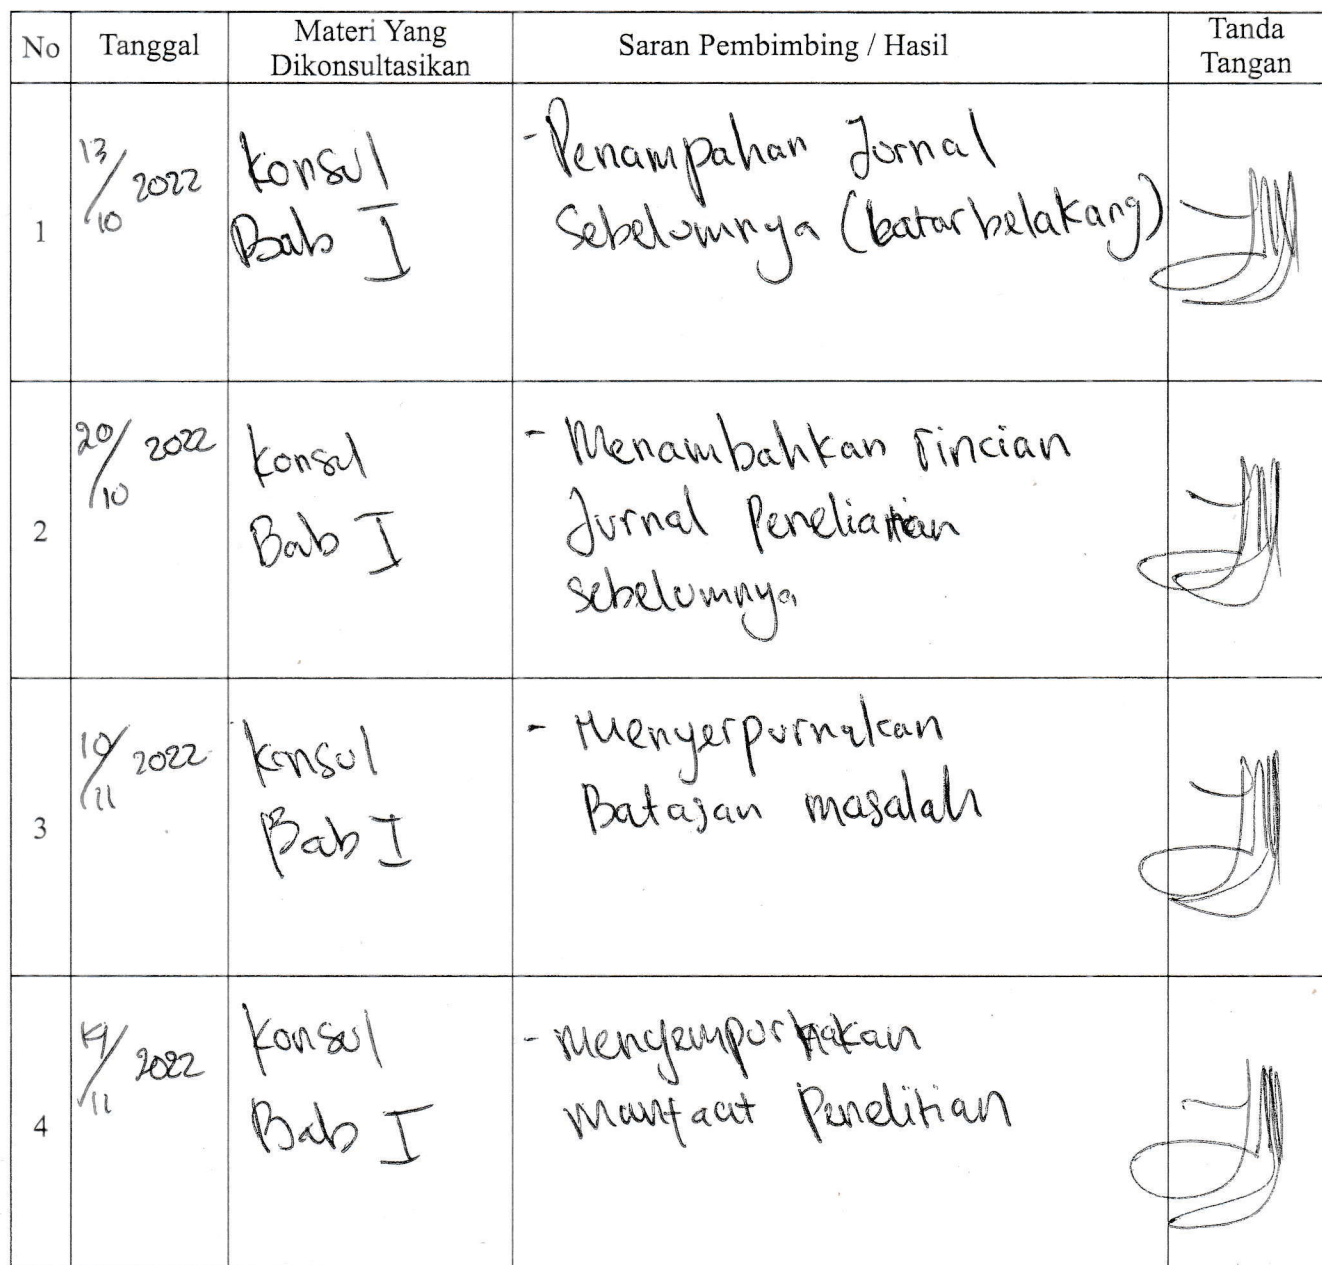 No Tanggal Materi Yang Dikonsultasikan Saran Pembimbing / Hasil Tanda Tangan
1 13/10 2022 Konsul
Bab I
- Penampahan Jurnal
Sebelumnya (Latar belakang)
2 20/10 2022 Konsul
Bab I
- Menambahkan rincian
Jurnal Peneliatian
sebelumnya
3 10/11 2022 Konsul
Bab I
- Menyerpurnakan
Batasan masalah
4 /11 2022 Konsul
Bab I
- Menyempurnakan
Manfaat Penelitian